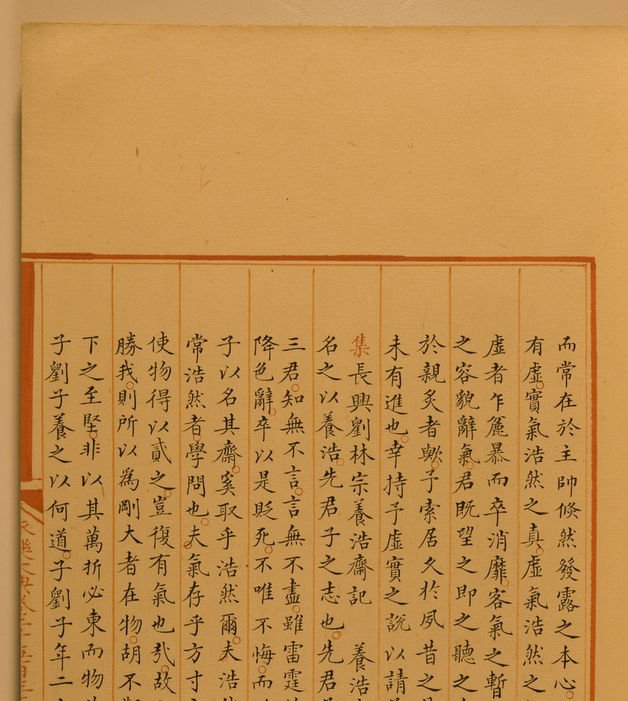 而常在於主帥倏然發露之本心
有虛實氣浩然之真虛氣浩然之
虛者乍麤暴而卒消靡客氣之暫
之容貌辭氣君既望之即之聽之
於親炙者歟予索居久於夙昔之
未有進也幸持予虛實之說以請
集長興劉林宗養浩齋記 養浩
名之以養浩先君子之志也先君
三君知無不言言無不盡雖雷霆
降色辭卒以是貶死不唯不悔而
子以名其齋奚取乎浩然爾夫浩
常浩然者學問也夫氣存乎方寸
使物得以貳之豈復有氣也哉故
勝我則所以為剛大者在物胡不
下之至堅非以其萬折必東而物
子劉子養之以何道子劉子年二
永樂大典卷